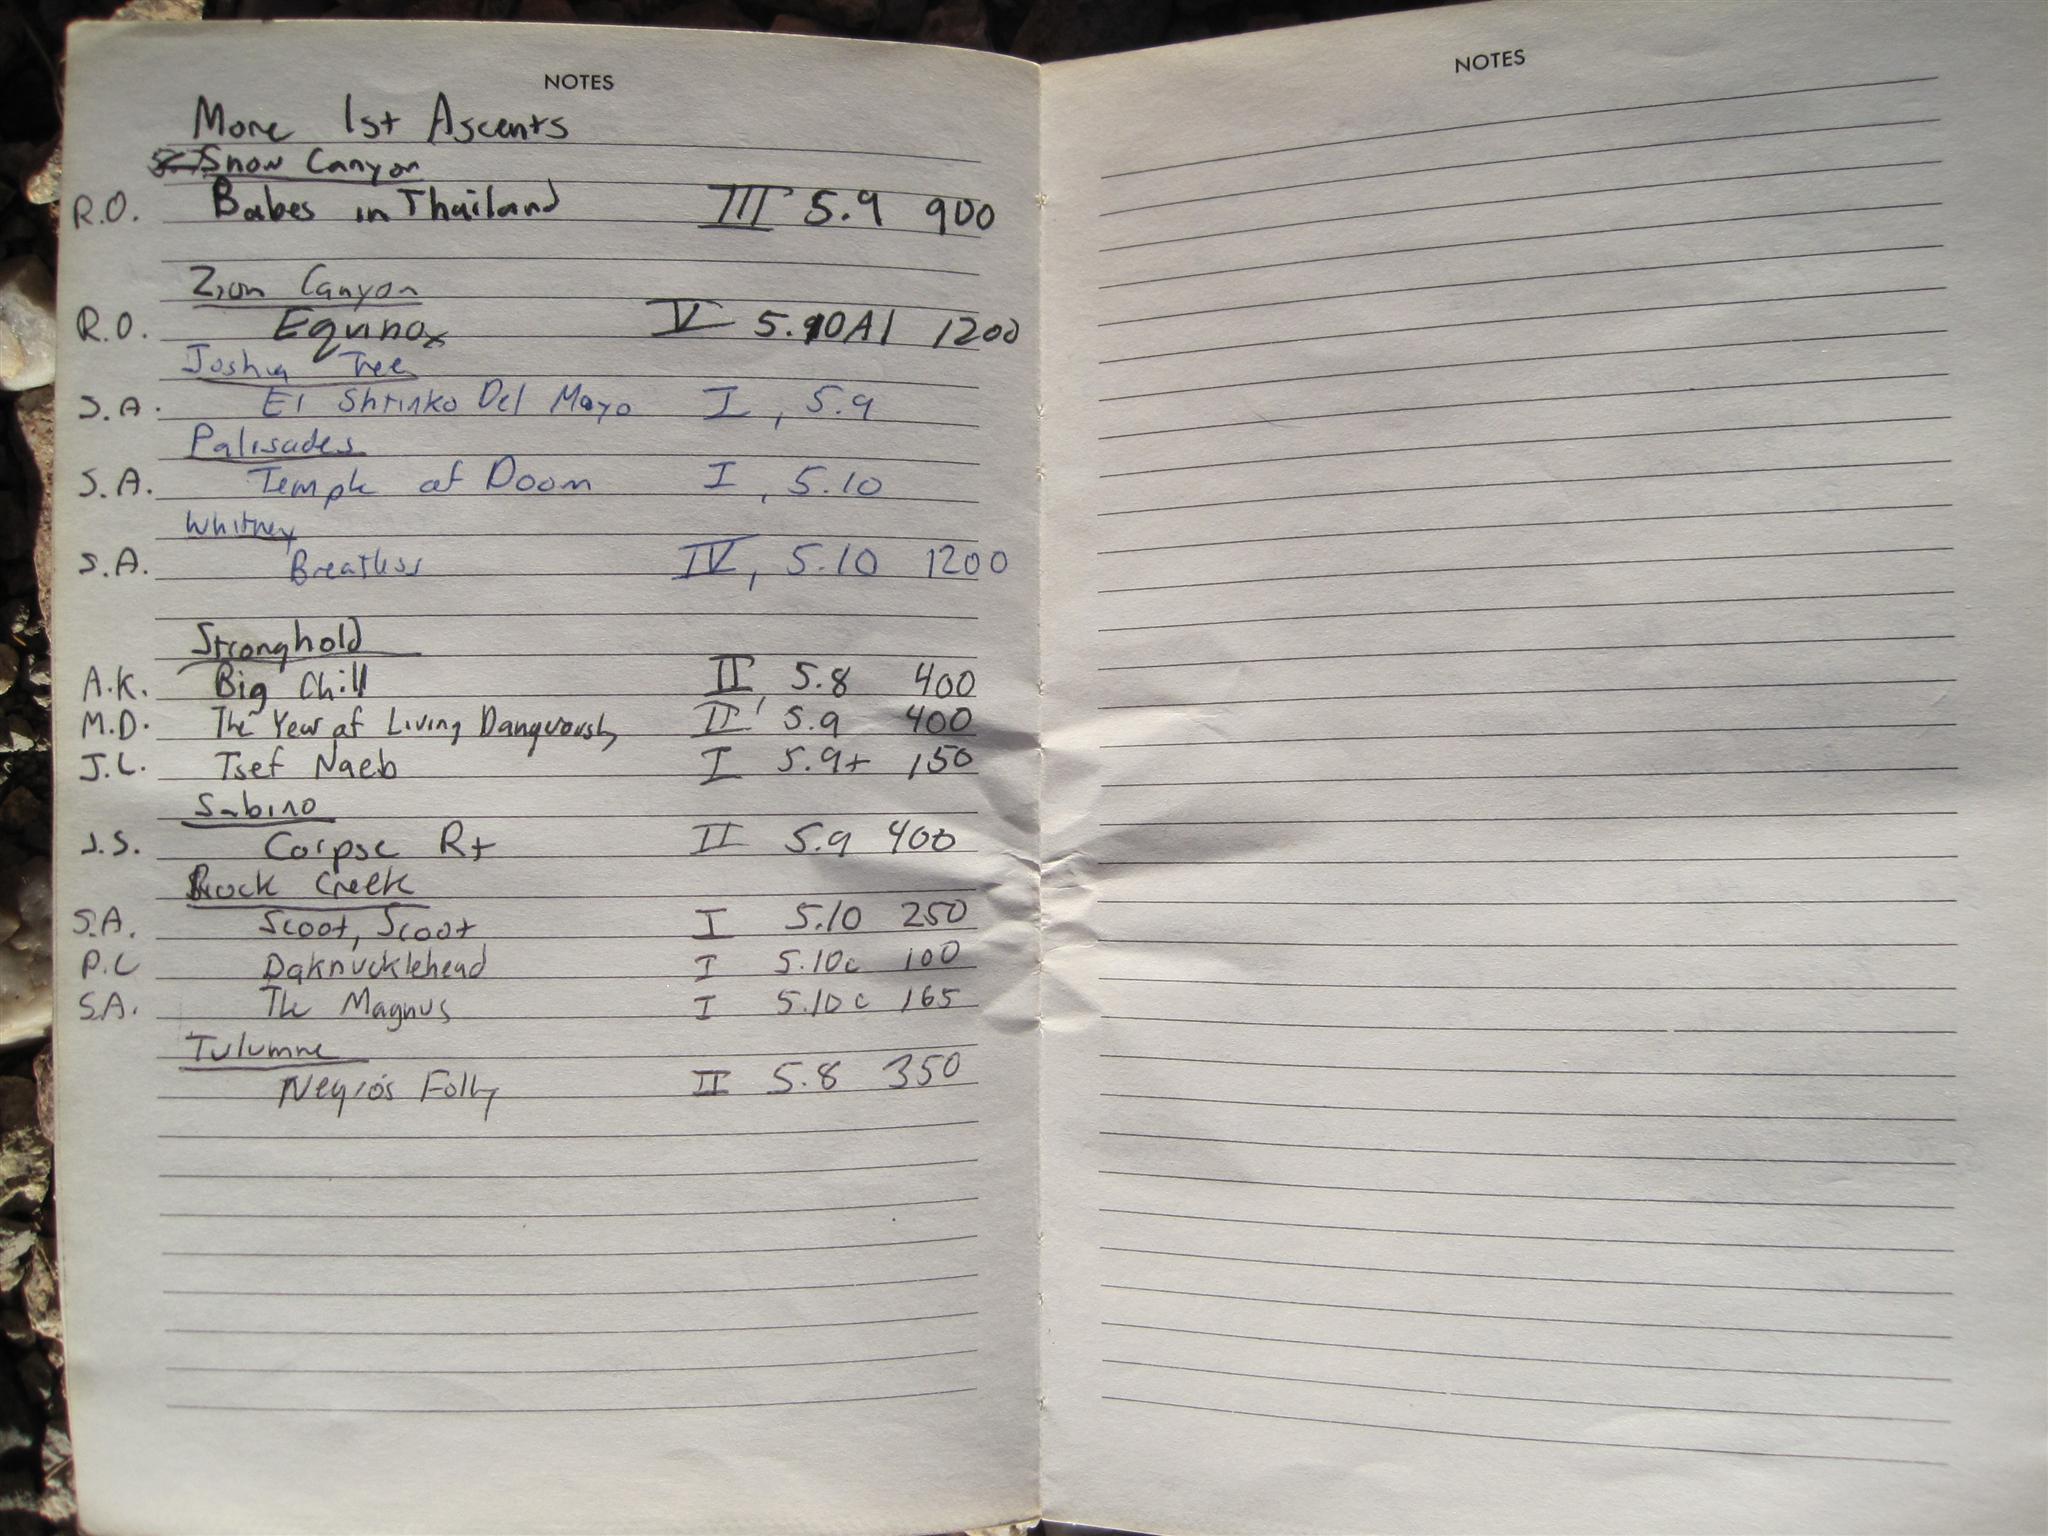 NOTES
More 1st Ascents
Snow Canyon
R.O. Babes in Thailand III 5.9 900
Zion Canyon
R.O. Equinox V 5.10A1 1200
Joshua Tree
S.A. El Shrinko Del Mayo I, 5.9
Palisades
S.A. Temple of Doom I, 5.10
Whitney
S.A. Breatless IV, 5.10 1200
Stronghold
A.K. Big Chill II, 5.8 400
M.D. The Year of Living Dangerously II, 5.9 400
J.L. Tsef Naeb I 5.9+ 150
Sabino
J.S. Corpse Rt II 5.9 400
Rock Creek
S.A. Scoot, Scoot I 5.10 250
P.C Daknucklehead I 5.10c 100
S.A. The Magnus I 5.10c 165
Tulumne
Negro's Folly II 5.8 350
NOTES